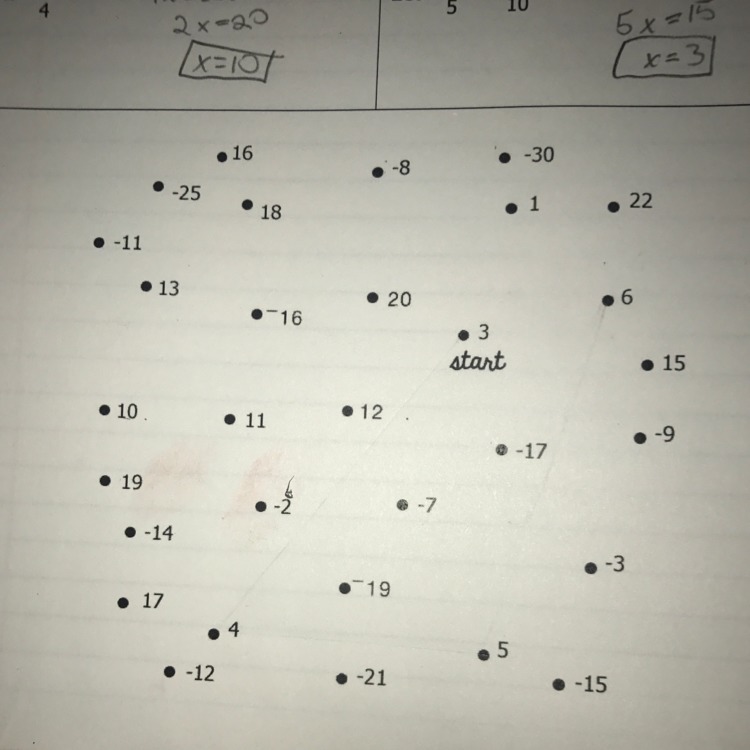 4
2x=20
x=10
5
10
5x=15
x=3
16
-8
-30
-25
18
1
22
-11
13
-16
20
3
6
start
15
10
11
12
-17
-9
19
-2
-7
-14
-19
-3
17
4
5
-12
-21
-15